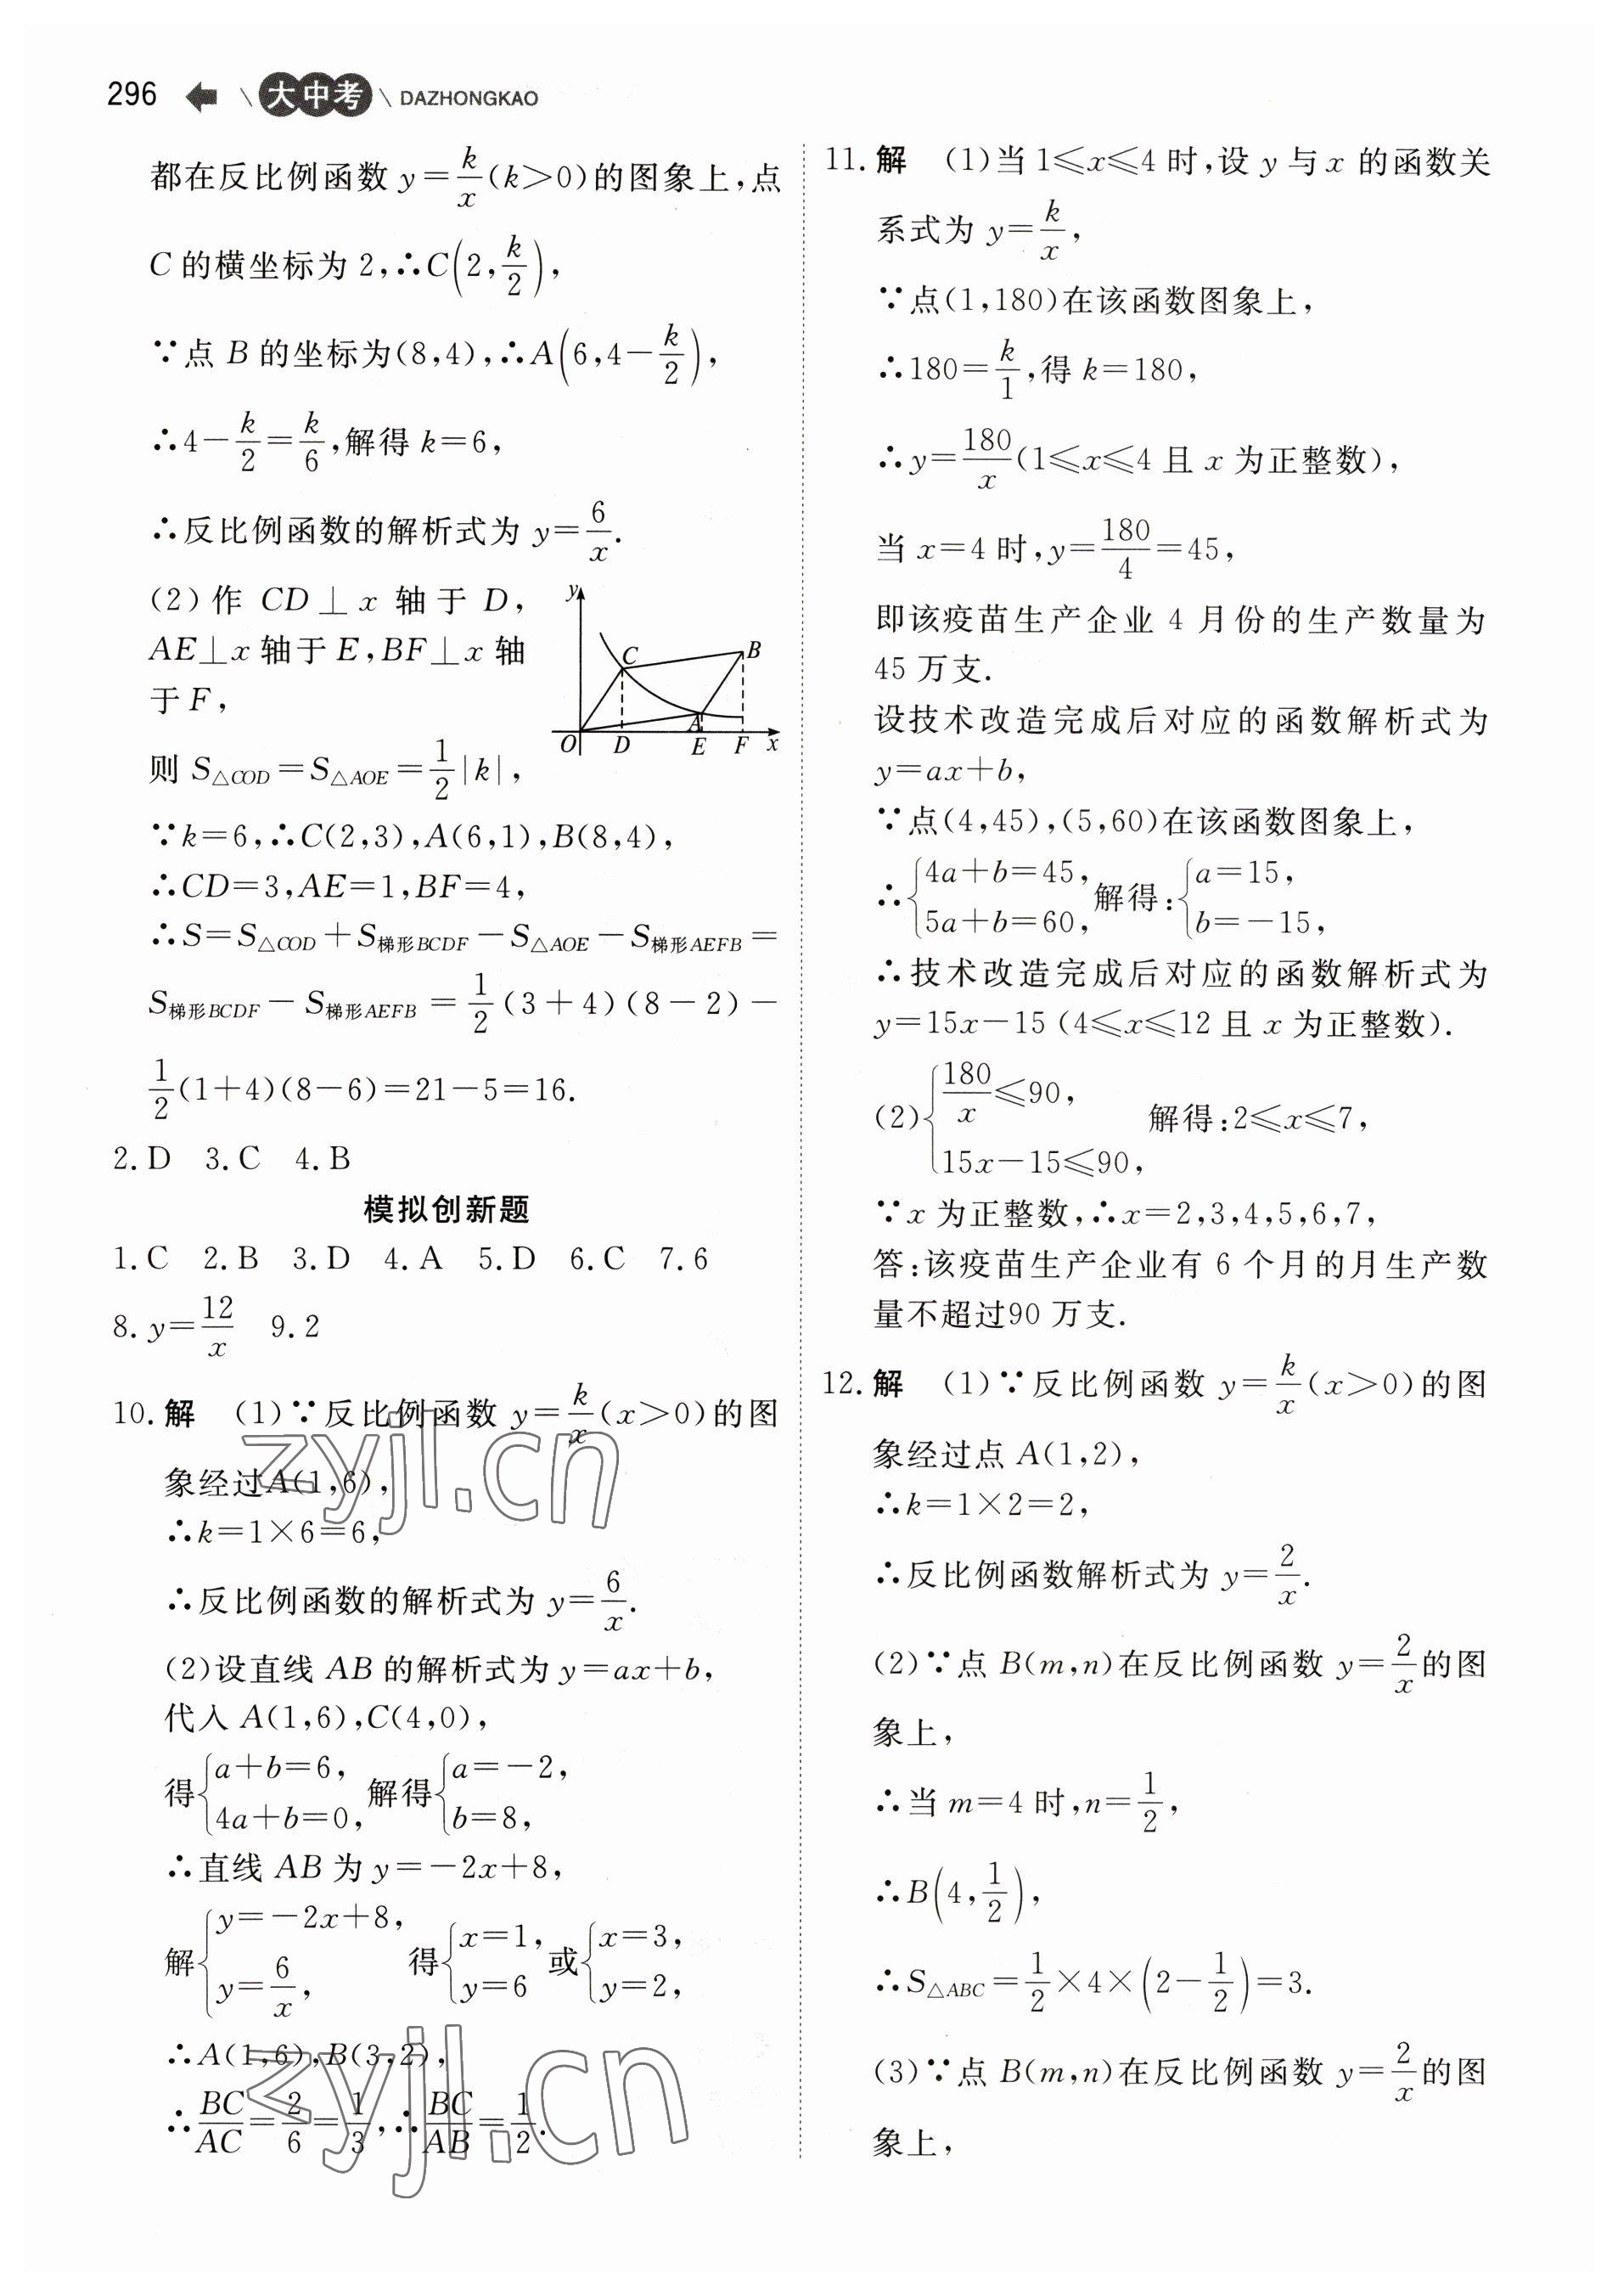 296 大中考 DAZHONGKAO
都在反比例函数 y=k/x(k>0)的图象上,点
C 的横坐标为 2,∴C(2,k/2),
∵点 B 的坐标为(8,4),∴A(6,4-k/2),
∴4-k/2=k/6,解得 k=6,
∴反比例函数的解析式为 y=6/x.
(2)作 CD⊥x 轴于 D,
AE⊥x 轴于 E,BF⊥x 轴
于 F,
y
C
B
A
O D E F x
则 S△COD=S△AOE=1/2|k|,
∵k=6,∴C(2,3),A(6,1),B(8,4),
∴CD=3,AE=1,BF=4,
∴S=S△COD+S梯形BCDF-S△AOE-S梯形AEFB=
S梯形BCDF-S梯形AEFB=1/2(3+4)(8-2)-
1/2(1+4)(8-6)=21-5=16.
2.D 3.C 4.B
模拟创新题
1.C 2.B 3.D 4.A 5.D 6.C 7.6
8.y=12/x 9.2
10.解 (1)∵反比例函数 y=k/x(x>0)的图
象经过A(1,6),
∴k=1×6=6,
∴反比例函数的解析式为 y=6/x.
(2)设直线 AB 的解析式为 y=ax+b,
代入 A(1,6),C(4,0),
得{a+b=6, 4a+b=0, 解得{a=-2, b=8,
∴直线 AB 为 y=-2x+8,
解{y=-2x+8, y=6/x, 得{x=1, y=6 或{x=3, y=2,
∴A(1,6),B(3,2),
∴BC/AC=2/6=1/3,∴BC/AB=1/2.
11.解 (1)当 1≤x≤4 时,设 y 与 x 的函数关
系式为 y=k/x,
∵点(1,180)在该函数图象上,
∴180=k/1,得 k=180,
∴y=180/x(1≤x≤4 且 x 为正整数),
当 x=4 时,y=180/4=45,
即该疫苗生产企业 4 月份的生产数量为
45 万支.
设技术改造完成后对应的函数解析式为
y=ax+b,
∵点(4,45),(5,60)在该函数图象上,
∴{4a+b=45, 5a+b=60, 解得:{a=15, b=-15,
∴技术改造完成后对应的函数解析式为
y=15x-15 (4≤x≤12 且 x 为正整数).
(2){180/x≤90, 15x-15≤90, 解得:2≤x≤7,
∵x 为正整数,∴x=2,3,4,5,6,7,
答:该疫苗生产企业有 6 个月的月生产数
量不超过90 万支.
12.解 (1)∵反比例函数 y=k/x(x>0)的图
象经过点 A(1,2),
∴k=1×2=2,
∴反比例函数解析式为 y=2/x.
(2)∵点 B(m,n)在反比例函数 y=2/x的图
象上,
∴当 m=4 时,n=1/2,
∴B(4,1/2),
∴S△ABC=1/2×4×(2-1/2)=3.
(3)∵点 B(m,n)在反比例函数 y=2/x的图
象上,
zyjl.cn
zyjl.cn